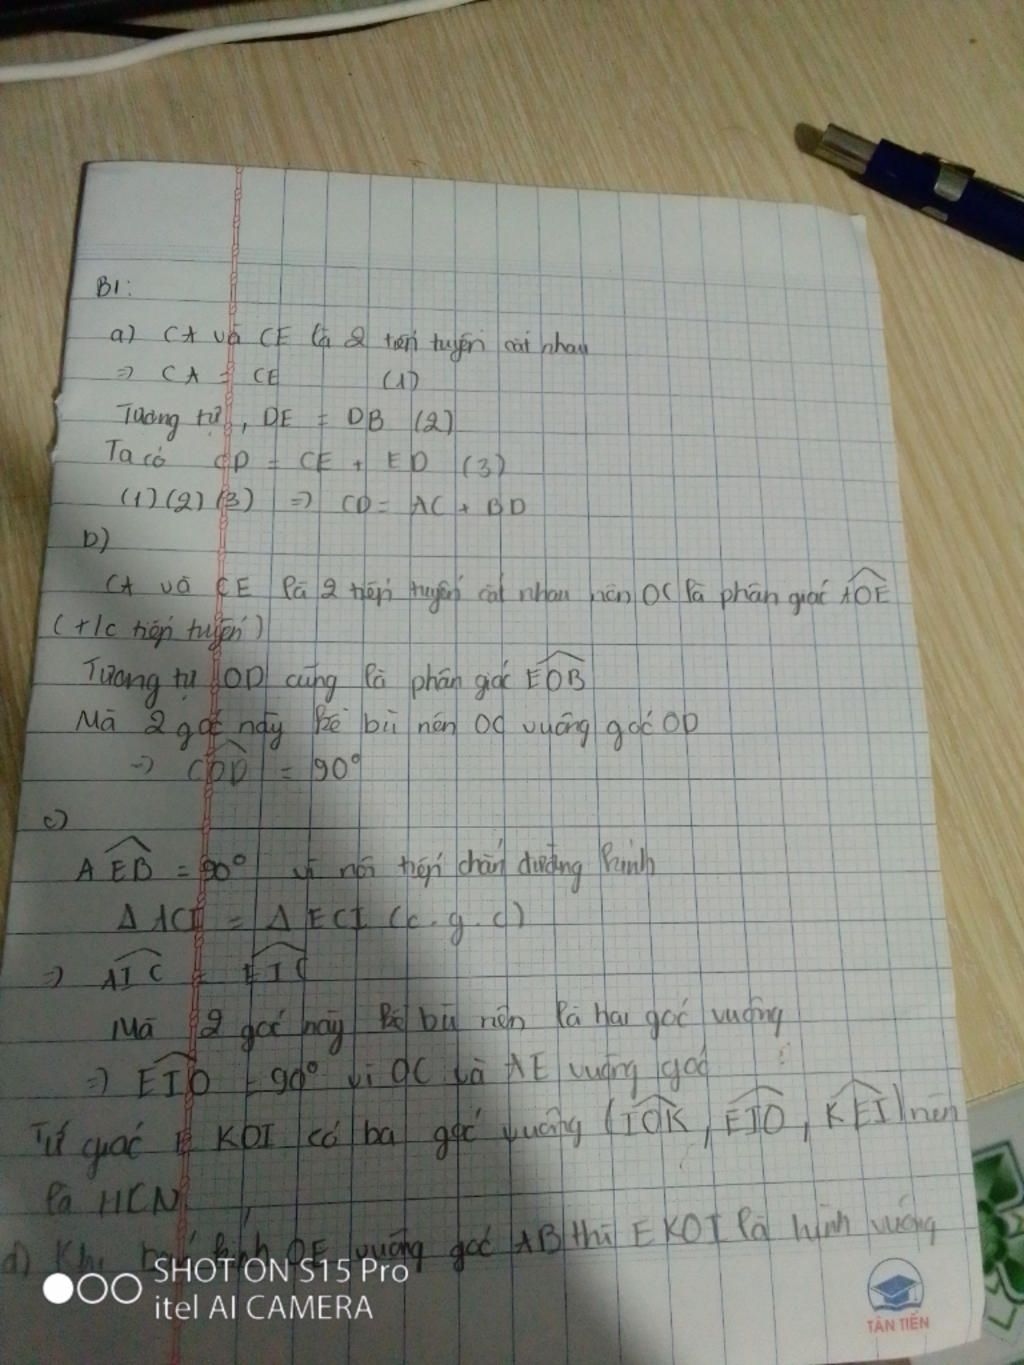 B1:
a) CA và CE là 2 tiếp tuyến cắt nhau
=> CA = CE (1)
Tương tự, DE = DB (2)
Ta có CD = CE + ED (3)
(1)(2)(3) => CD = AC + BD
b)
CA và CE là 2 tiếp tuyến cắt nhau nên OC là phân giác AOE
(t/c tiếp tuyến)
Tương tự OD cũng là phân giác EOB
Mà 2 góc này kề bù nên OC vuông góc OD
=> COD = 90°
c)
AEB = 90° vì nội tiếp chắn đường kính
Δ ACI = Δ ECI (c.g.c)
=> AIC = EIC
Mà 2 góc này kề bù nên là hai góc vuông
=> EIO = 90° vì OC và AE vuông góc
Tứ giác EKOI có ba góc vuông (IOK, EIO, KEI) nên
là HCN
d) Khi bán kính OE vuông góc AB thì EKOI là hình vuông
SHOT ON S15 Pro
itel AI CAMERA
TÂN TIẾN